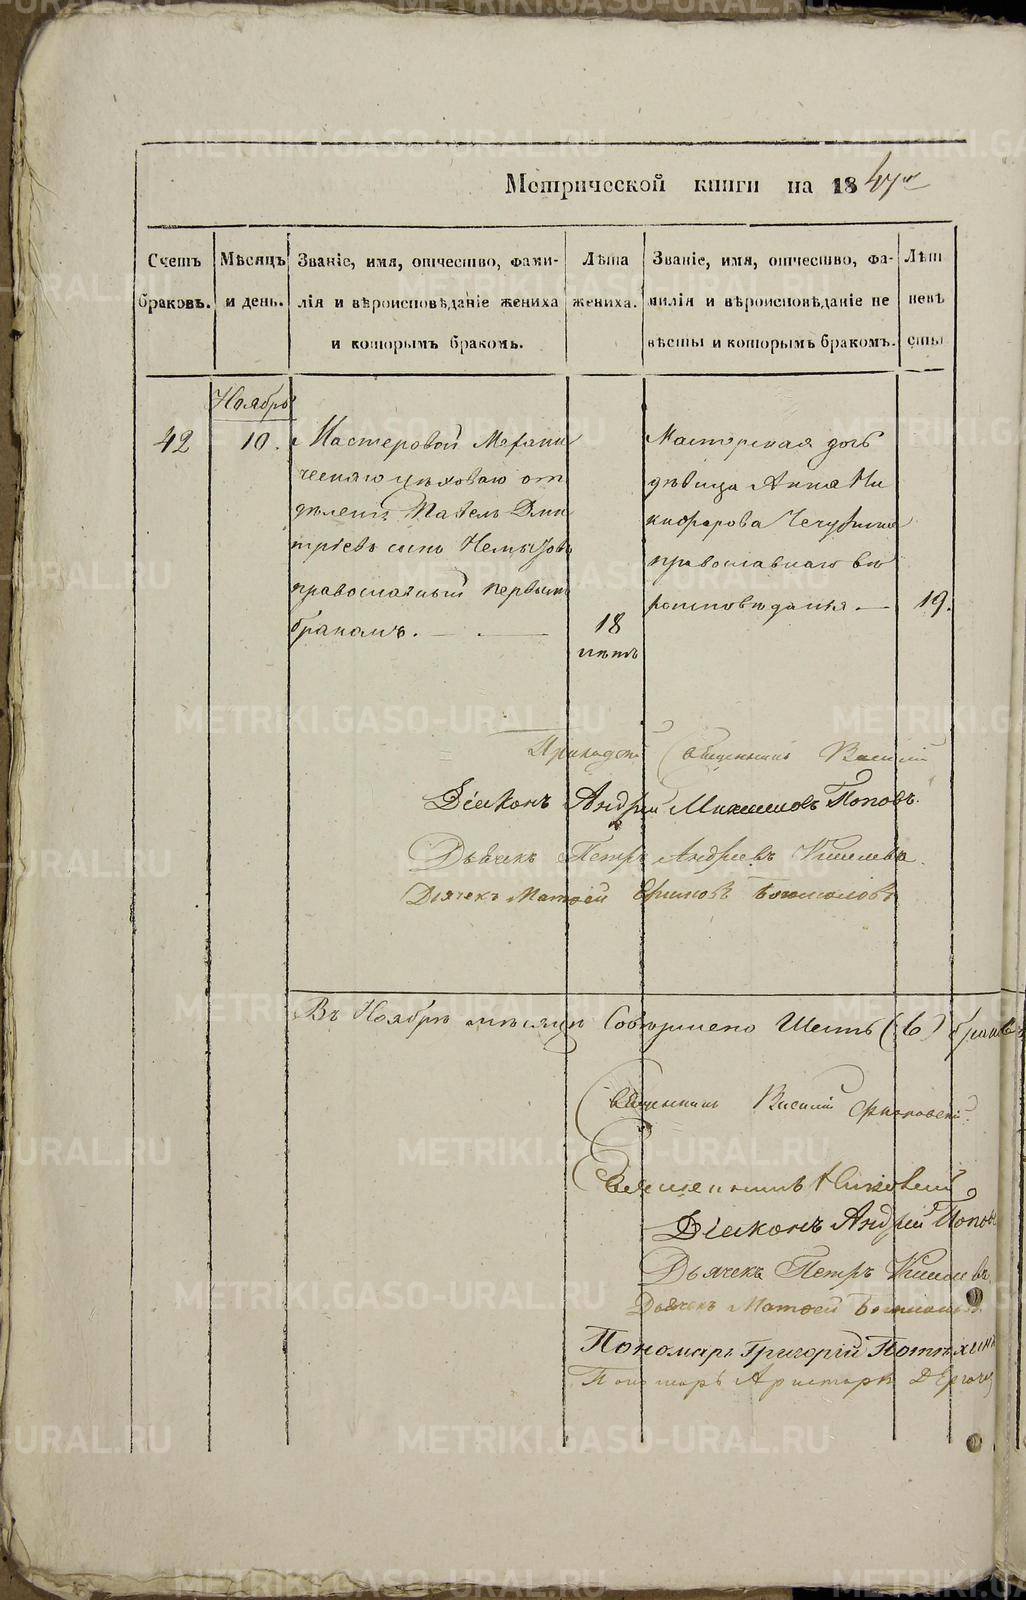 Метрической книги на 1847й
Счетъ браковъ.
Мѣсяцъ и день.
Званіе, имя, отчество, фами-
лія и вѣроисповѣданіе жениха
и которымъ бракомъ.
Лѣта
жениха.
Званіе, имя, отчество, фа-
милія и вѣроисповѣданіе не
вѣсты и которымъ бракомъ.
Лѣт
невѣ
сты
Ноябрь
42
10.
Мастеровой Механи
ческаго цѣховаго от
дѣленія Павелъ Дми
тріевъ сынъ
православный первымъ
бракомъ.
18
лѣтъ
Мастерская дочь
дѣвица Анна Ни
кифорова
православнаго вѣ
роисповѣданія.
19.
Приходскій Священникъ Василій
Діаконъ Андрей Поповъ.
Дьячекъ Петръ Андреевъ Киселевъ.
Дьячекъ Матѳей Ефимовъ Богомоловъ
Въ Ноябрѣ мѣсяцѣ Совершено Шесть (6) браковъ
Священникъ Василій
Священникъ
Діаконъ Андрей Поповъ
Дьячекъ Петръ Киселевъ
Дьячекъ Матѳей Богомоловъ
Пономарь Григорій
Пономарь Аристархъ
METRIKI.GASO-URAL.RU